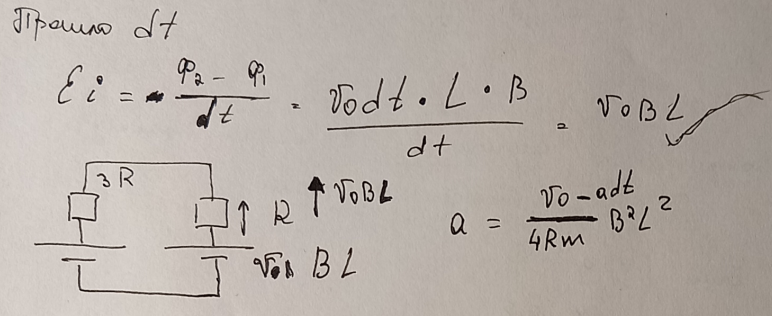 Прошло dt
Ei = - φ₂ - φ₁ / dt = v₀dt · L · B / dt = v₀BL ✓
3R
R
v₀BL
v₀ BL
a = v₀ - adt / 4Rm B²L²